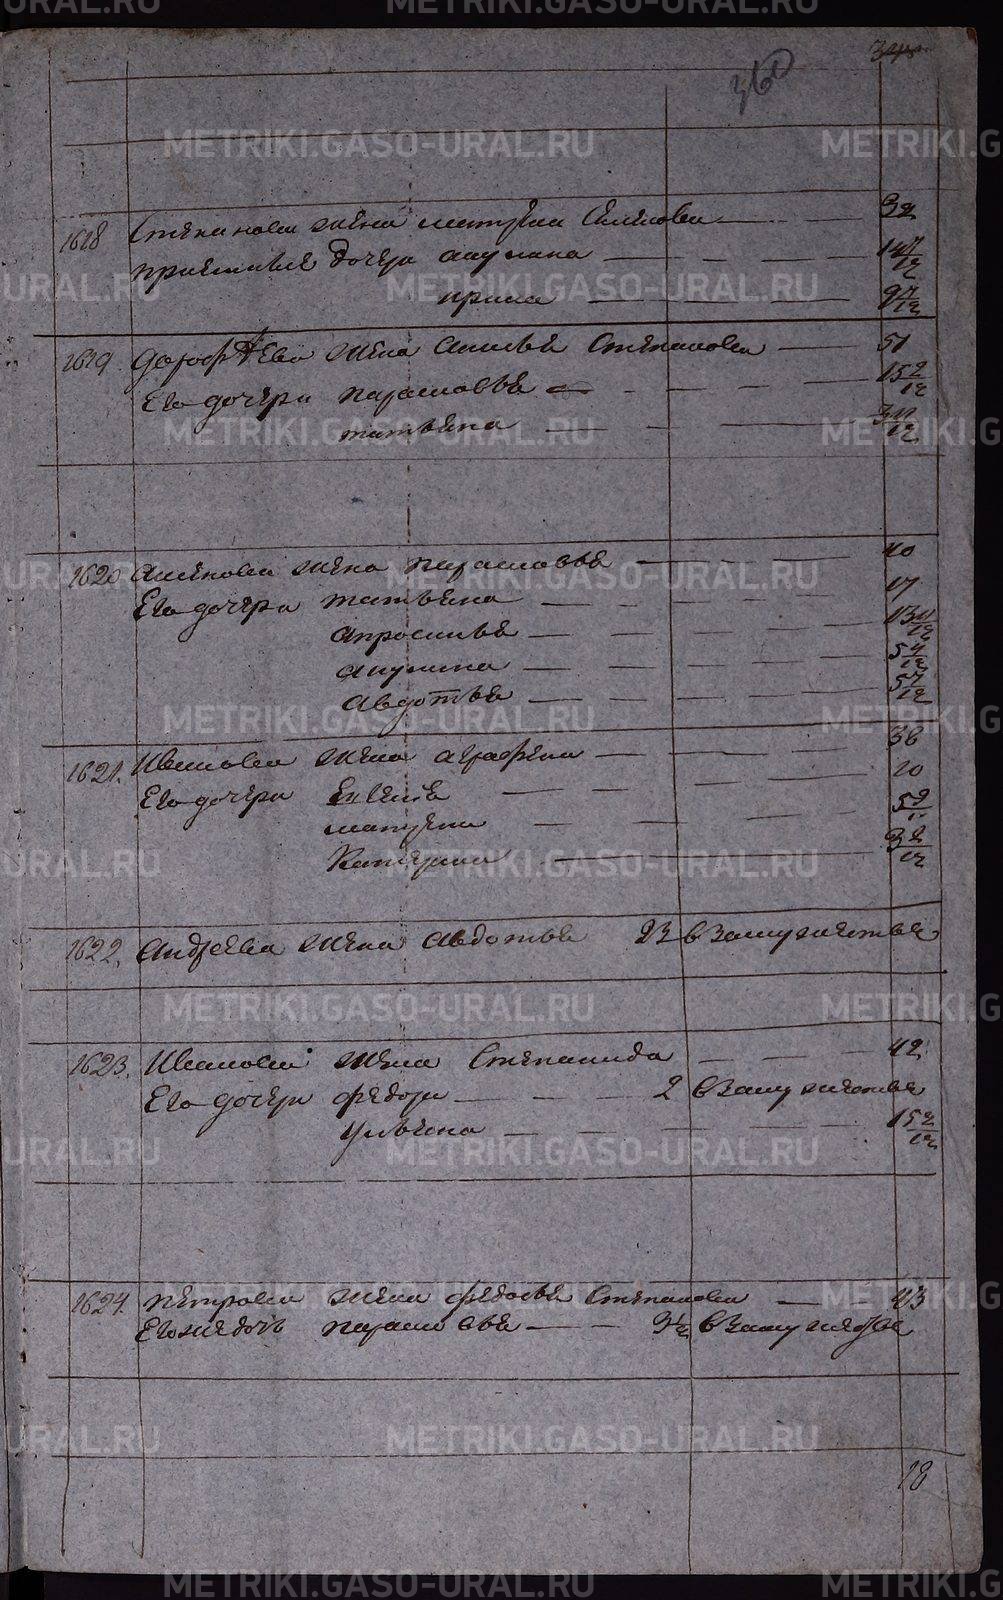 360
1618 Степанова жена матрена Семенова — 32
приемные дочери акулина — 14 7/12
ирина — 9 7/12
1619 Дорофѣева жена Анисья Степанова — 51
Его дочери парасковья — 15 2/12
татьяна — 3 11/12
1620 жена парасковья — 40
Его дочери татьяна — 17
апросинья — 13 11/12
акулина — 5 4/12
Авдотья — 5 4/12
1621. Иванова жена аграфена — 38
Его дочери — 20
матрена
Катерина — 3 2/12
1622. Андреева жена Авдотья 23 в замужестве
1623. Иванова жена Степанида — 42
Его дочери федора — 2 в замужестве
ульяна — 15 2/12
1624. петрова жена федосья Степанова — 43
Его же дочь парасковья — 9 1/2 в замужестве
18
METRIKI.GASO-URAL.RU